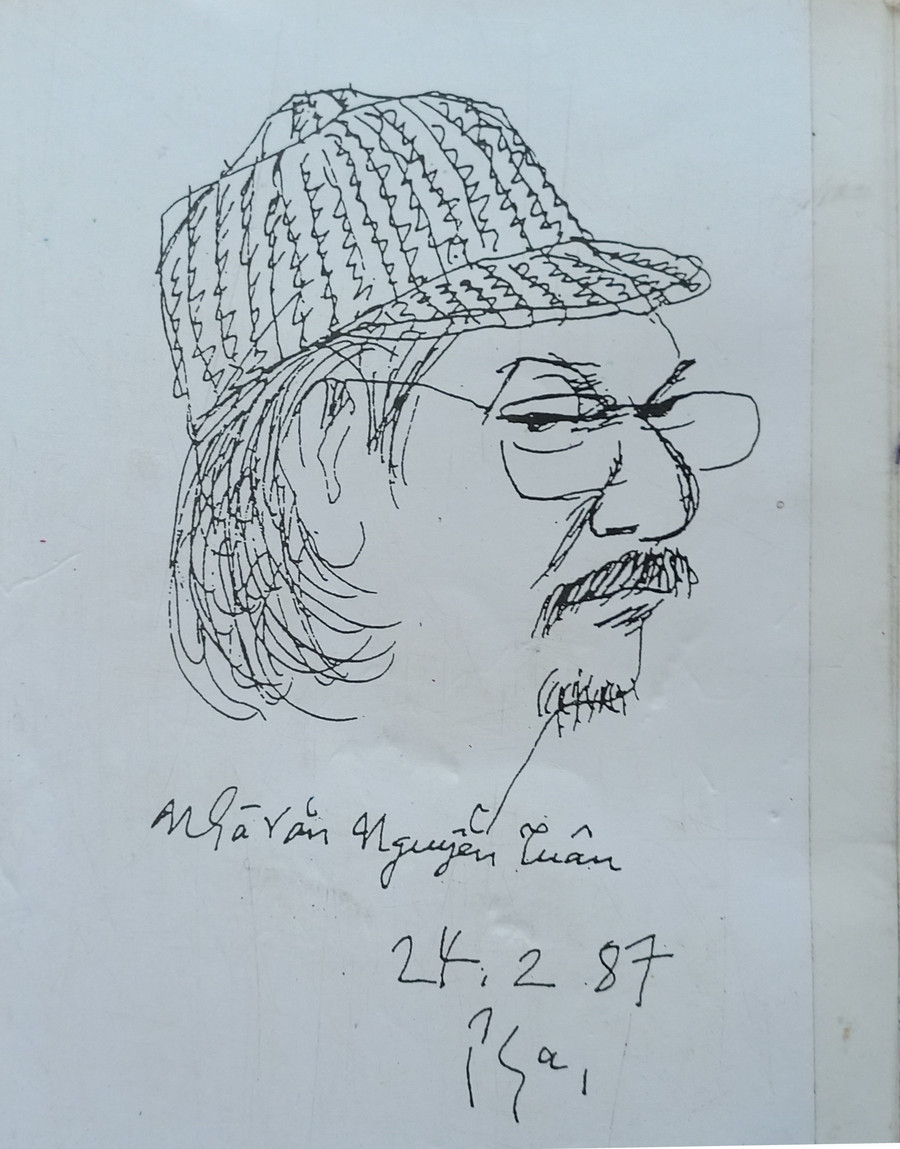 Nhà văn Nguyễn Tuân
24.2.87